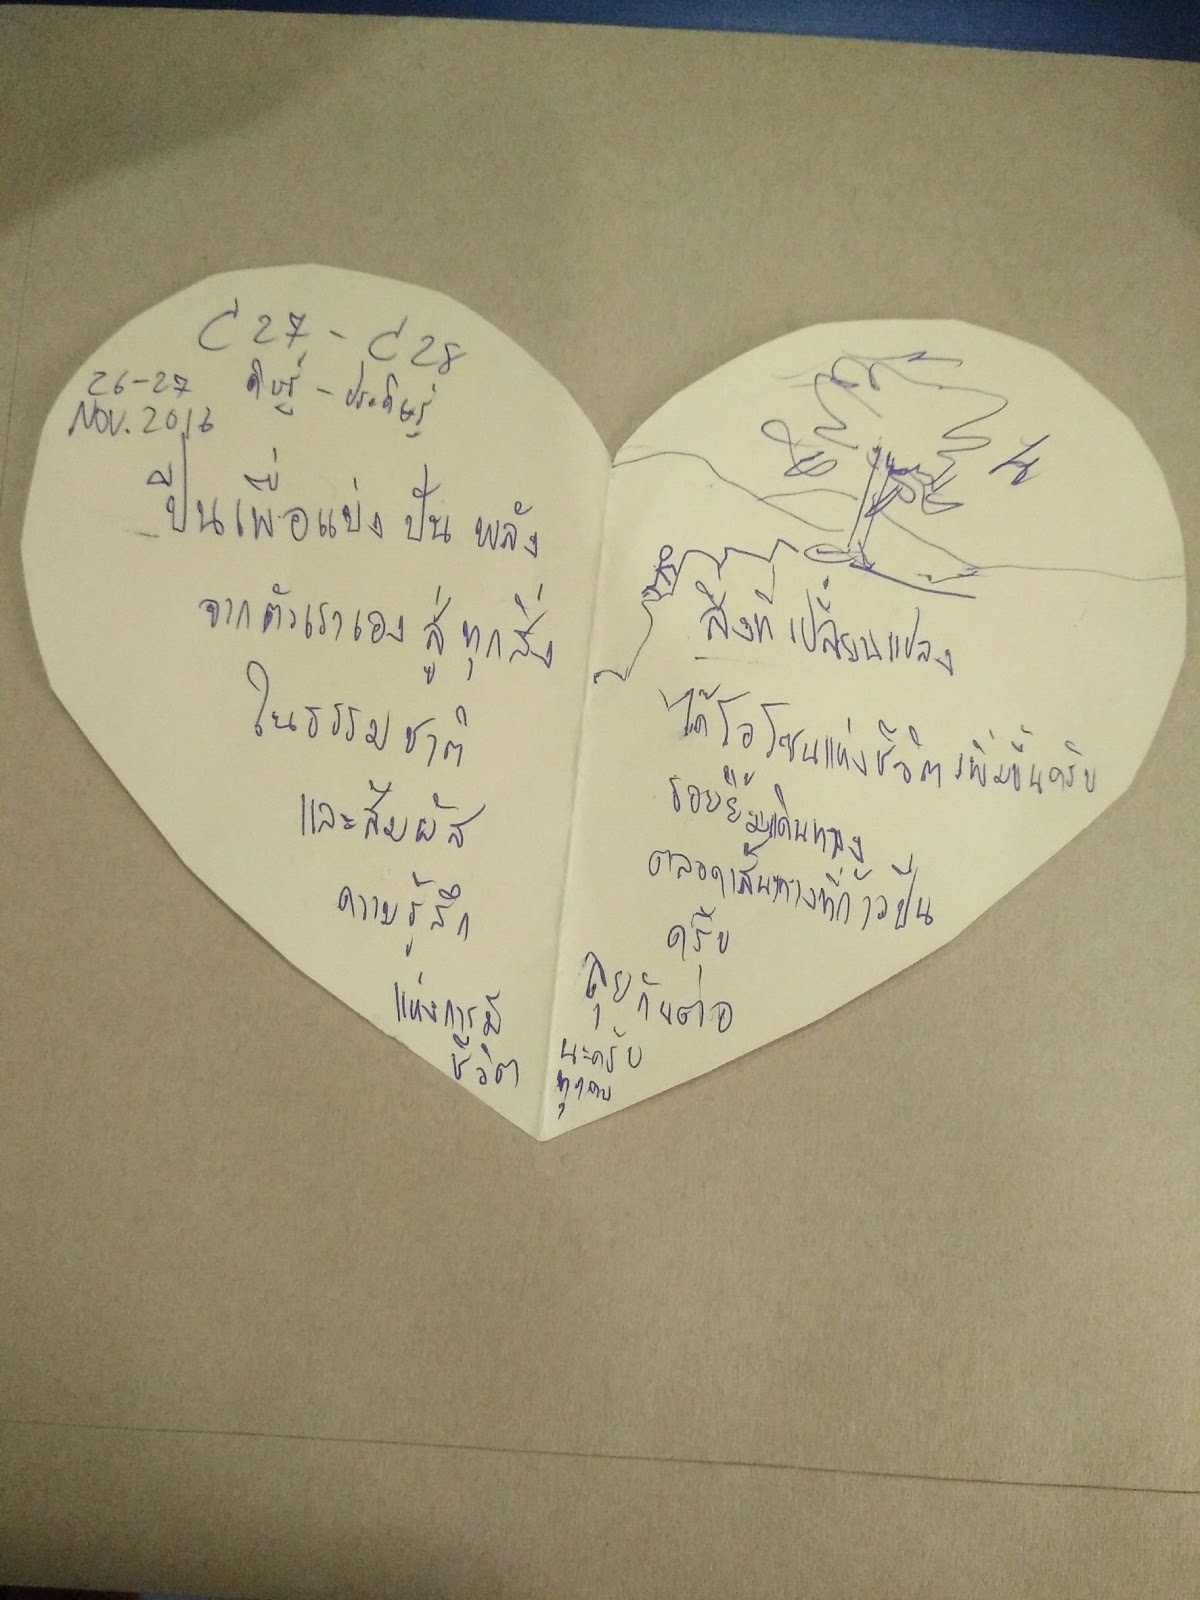 C27 - C28
26-27
NOV. 2016
ปีนเพื่อแบ่งปัน พลัง
จากตัวเราเอง สู่ ทุกสิ่ง
ในธรรมชาติ
และสัมผัส
ความรู้สึก
แห่งการมี
ชีวิต
สิ่งที่ เปลี่ยนแปลง
ได้โอโซนแห่งชีวิตเพิ่มขึ้นครับ
รอยยิ้มเดินทาง
ตลอดเส้นทางที่ก้าวปีน
ครับ
ลุยกันต่อ
นะครับ
ทุกคน